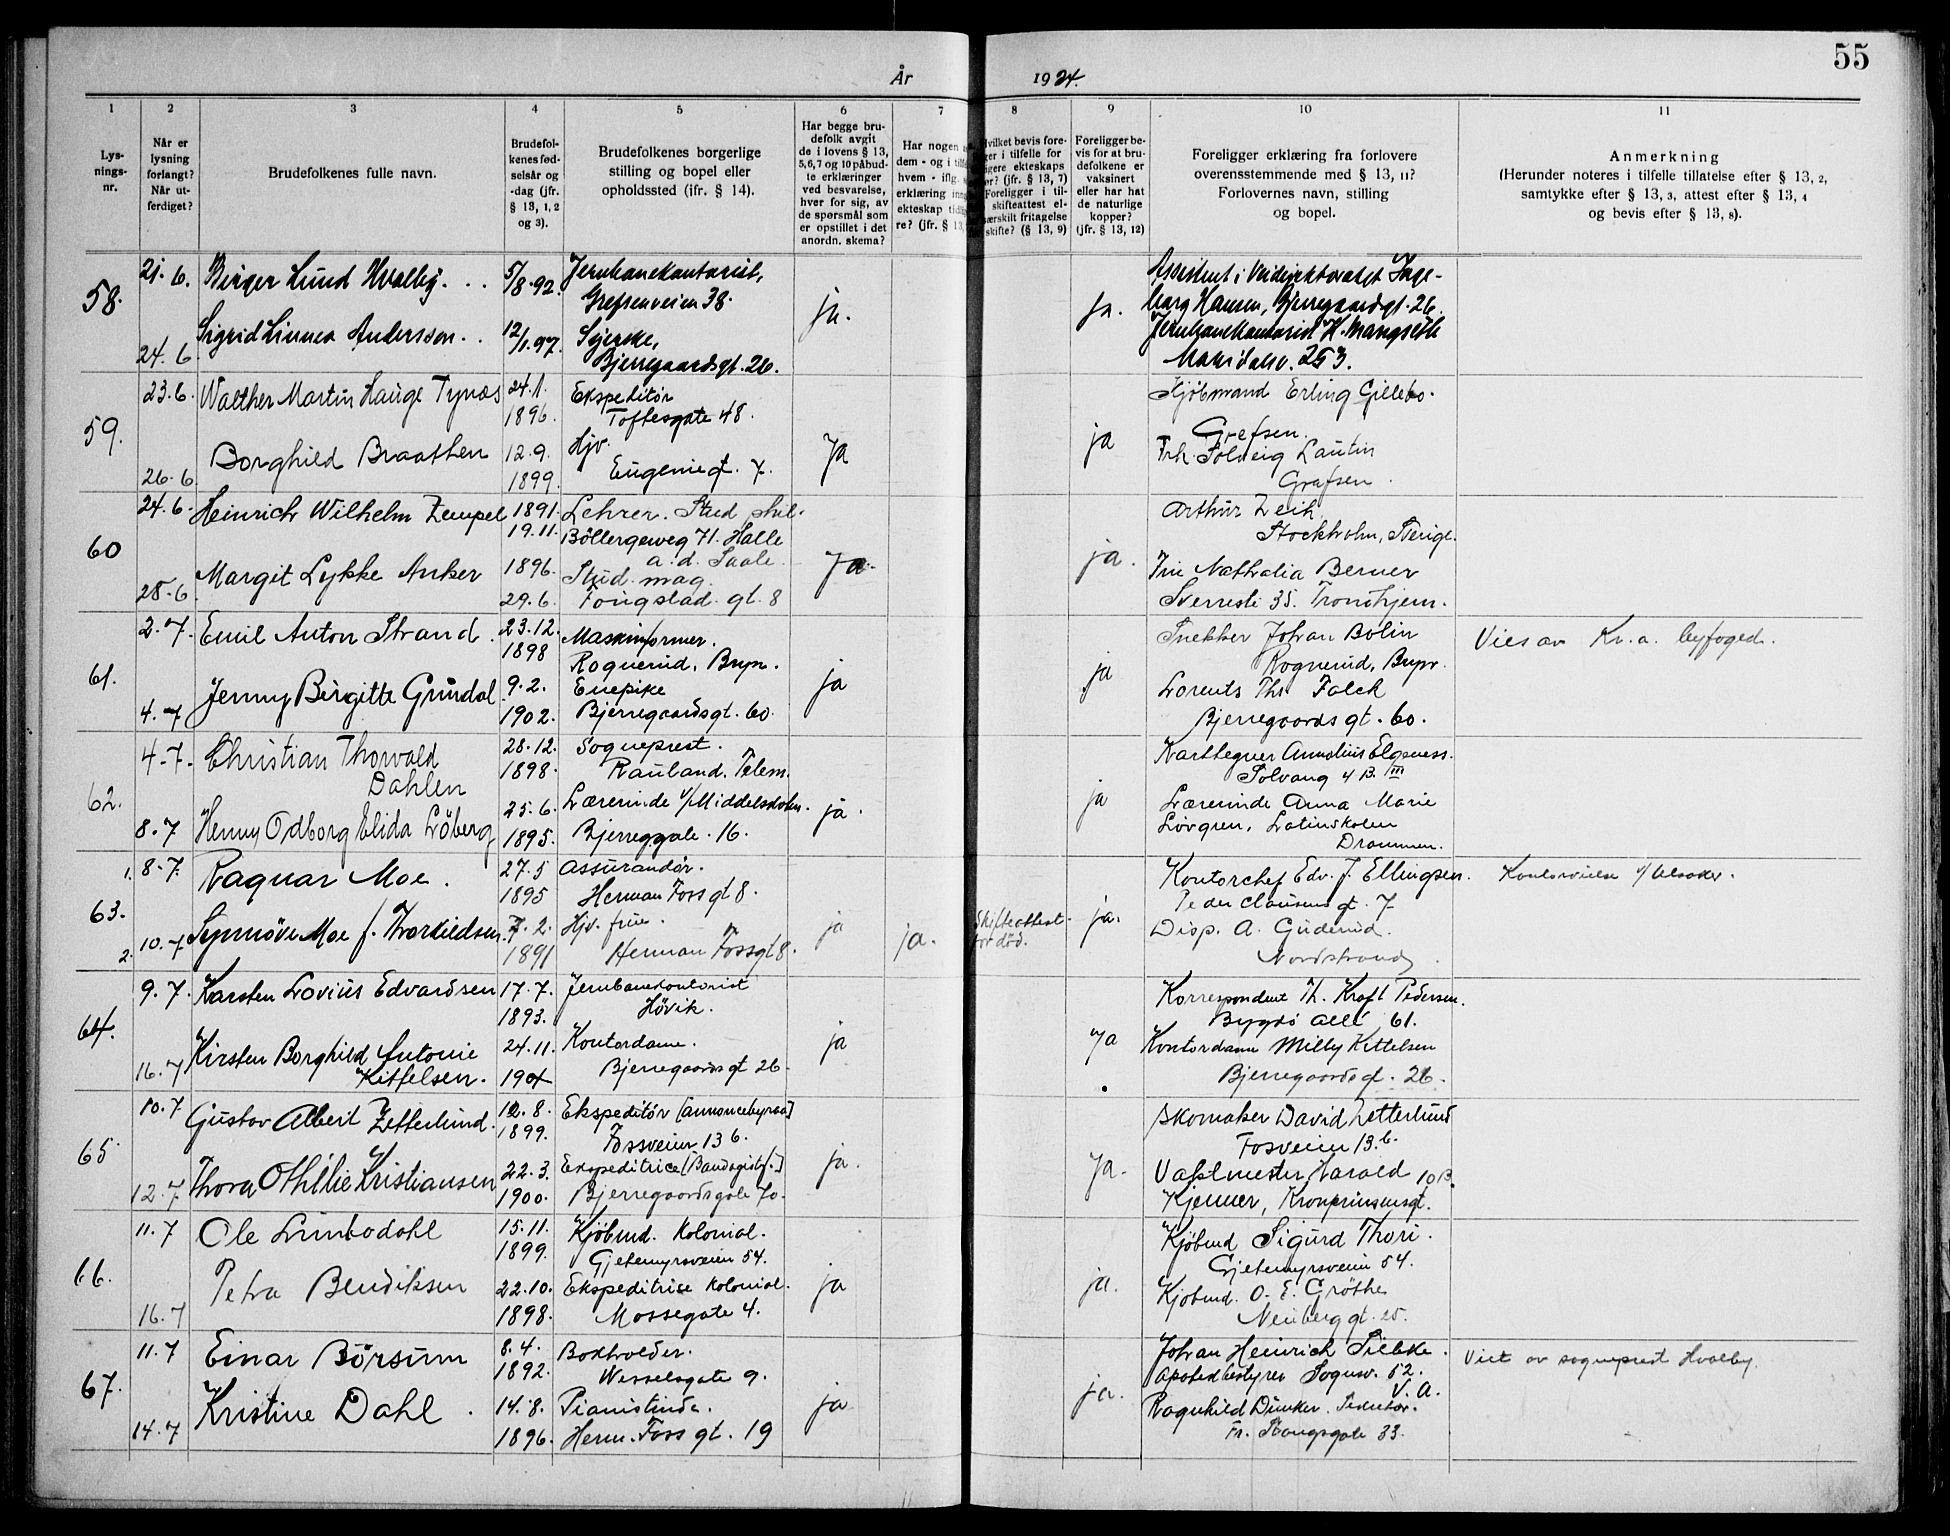 55
År 1924.
1 2 3 4 5 6 7 8 9 10 11
Lys-
nings-
nr.
Når er
lysning
forlangt?
Når ut-
ferdiget?
Brudefolkenes fulle navn.
Brudefol-
kenes fød-
selsår og
-dag (jfr.
§ 13, 1, 2
og 3).
Brudefolkenes borgerlige
stilling og bopel eller
opholdssted (ifr. § 14).
Har begge bru-
defolk avgit
de i lovens § 13,
5,6,7 og 10 påbud-
te erklæringer
ved besvarelse,
hver for sig, av
de spørsmål som
er opstillet i det
anordn. skema?
Har nogen
dem - og i
hvem - iflg.
erklæring
ekteskap
re? (jfr. § 13,
hvilket bevis fore-
ger i tilfelle for
igere ekteskaps
er? (jfr. § 13, 7)
Foreligger i til-
skifteattest el-
særskilt fritagelse
skifte? (§ 13, 9)
Foreligger be-
vis for at bru-
defolkene er
vaksinert
eller har hat
de naturlige
kopper?
(jfr. § 13, 12)
Foreligger erklæring fra forlovere
overensstemmende med § 13, 11?
Forlovernes navn, stilling
og bopel.
Anmerkning
(Herunder noteres i tilfelle tillatelse efter § 13, 2,
samtykke efter § 13, 3, attest efter § 13, 4
og bevis efter § 13, 8).
58.
21.6.
Birger Lund Hvalby. . .
5/8.92.
Jernbanekontorist,
Grefsenveien 38.
24.6
Sigrid Linnea Andersson . .
12/1.97.
Syerske,
Bjerregaardsgt. 26.
ja.
ja.
Assistent i Veidirektoratet Inge-
borg Hansen, Bjerregaardgt. 26.
Jernbanekontorist H. Mangseth
Maridalsv. 253.
59.
23.6.
Walther Martin Hauge Tynæs
24.1.
1896.
Ekspeditör
Toftesgate 48.
26.6
Borghild Braathen
12.9.
1899.
Hjv.
Eugeniegt. 7.
Ja
ja
Kjöbmand Erling Gillebo.
Grefsen.
Frk. Solveig Lautin
Grefsen.
60
24.6.
Heinrich Wilhelm Zempel
1891.
19.11.
Lehrer. Stud phil.
Böllergeweg 71. Halle
a. d. Saale.
28.6.
Margit Lykke Anker
1896.
29.6.
Stud. mag.
Fougstad. gt. 8
Ja.
ja.
Arthur Zeik
Stockholm, Sverige.
Fru Nathalia Berner
Sverresli 35. Trondhjem.
61.
2.7.
Emil Anton Strand.
23.12.
1898
Maskinformer.
Rognerud, Bryn.
4.7
Jenny Birgitte Grindal.
9.2.
1902.
Enepike
Bjerregaardsgt. 60.
ja
ja
Snekker Johan Bolin
Rognerud, Bryn.
Lorents Ths Falck
Bjerregaards gt. 60.
Vies av Kr.a. byfoged.
62.
4.7.
Christian Thorvald
Dahlen
28.12.
1898.
Sogneprest.
Rauland. Telem.
8.7
Henny Odborg Elida Löberg
25.6.
1895.
Lærerinde v/Middelskolen.
Bjerreggate. 16.
ja.
ja
Karttegner Annolius
Solvang 4 B. III
Lærerinde Anna Marie
Lövgren, Latinskolen
Drammen.
63.
1. 8.7.
Ragnar Moe.
27.5
1895
Assurandör.
Herman Foss gt 8.
2. 10.7
Synnöve Moe f. Thorkildsen
7.2.
1891
Hjv. frue.
Herman Fossgt 8.
ja
ja.
Skifteattest
for död.
ja.
Kontorchef Edv. J. Ellingsen.
Peder Clausens gt. 7
Disp. A. Guderud.
Nordstrand.
64.
9.7.
Karsten Lovius Edvardsen
17.7.
1893.
Jernbanekontorist
Hövik.
16.7
Kirsten Borghild Antonie
Kittelsen.
24.11.
1904
Kontordame.
Bjerregaards gt 26.
ja
Ja
Korrespondent Th. Kraft Pedersen.
Bygdö allé 61.
Kontordame Milly Kittelsen
Bjerregaardsgt. 26.
65.
10.7
Gustav Albert Zetterlund.
12.8.
1899.
Ekspeditör [annoncebyraa]
Fossveien 13 b.
12.7
Thora Othilie Kristiansen
22.3.
1900.
Ekspeditrice [Bandagistf.]
Bjerregaardsgate 70.
ja.
Ja.
Skomaker David Zetterlund
Fosveien 13.b.
Vaktmester Harald
Kjenner, Kronprinsensgt. 10 B.
66.
11.7
Ole Lunbodahl
15.11.
1899.
Kjöbmd. Kolonial.
Gjetemyrsveien 54.
16.7
Petra Bendiksen
22.10.
1898.
Ekspeditrice Kolonial.
Mossegate 4.
ja
ja.
Kjöbmd Sigurd Thori.
Gjetemyrsveien 54.
Kjöbmd. O. E. Gröthe
Neuberg gt. 25.
67.
11.7
Einar Börsum
8.4.
1892.
Bokholder.
Wesselsgate 9.
14.7
Kristine Dahl.
14.8.
1896.
Pianistinde.
Herm. Foss gt. 19
ja
ja.
Johan Heinrich Siebke.
Apotekbestyrer Sognsv. 52.
V. A.
Ragnhild Dunker.
Fr. Stangsgate 33.
Viet av sogneprest Hvalby.